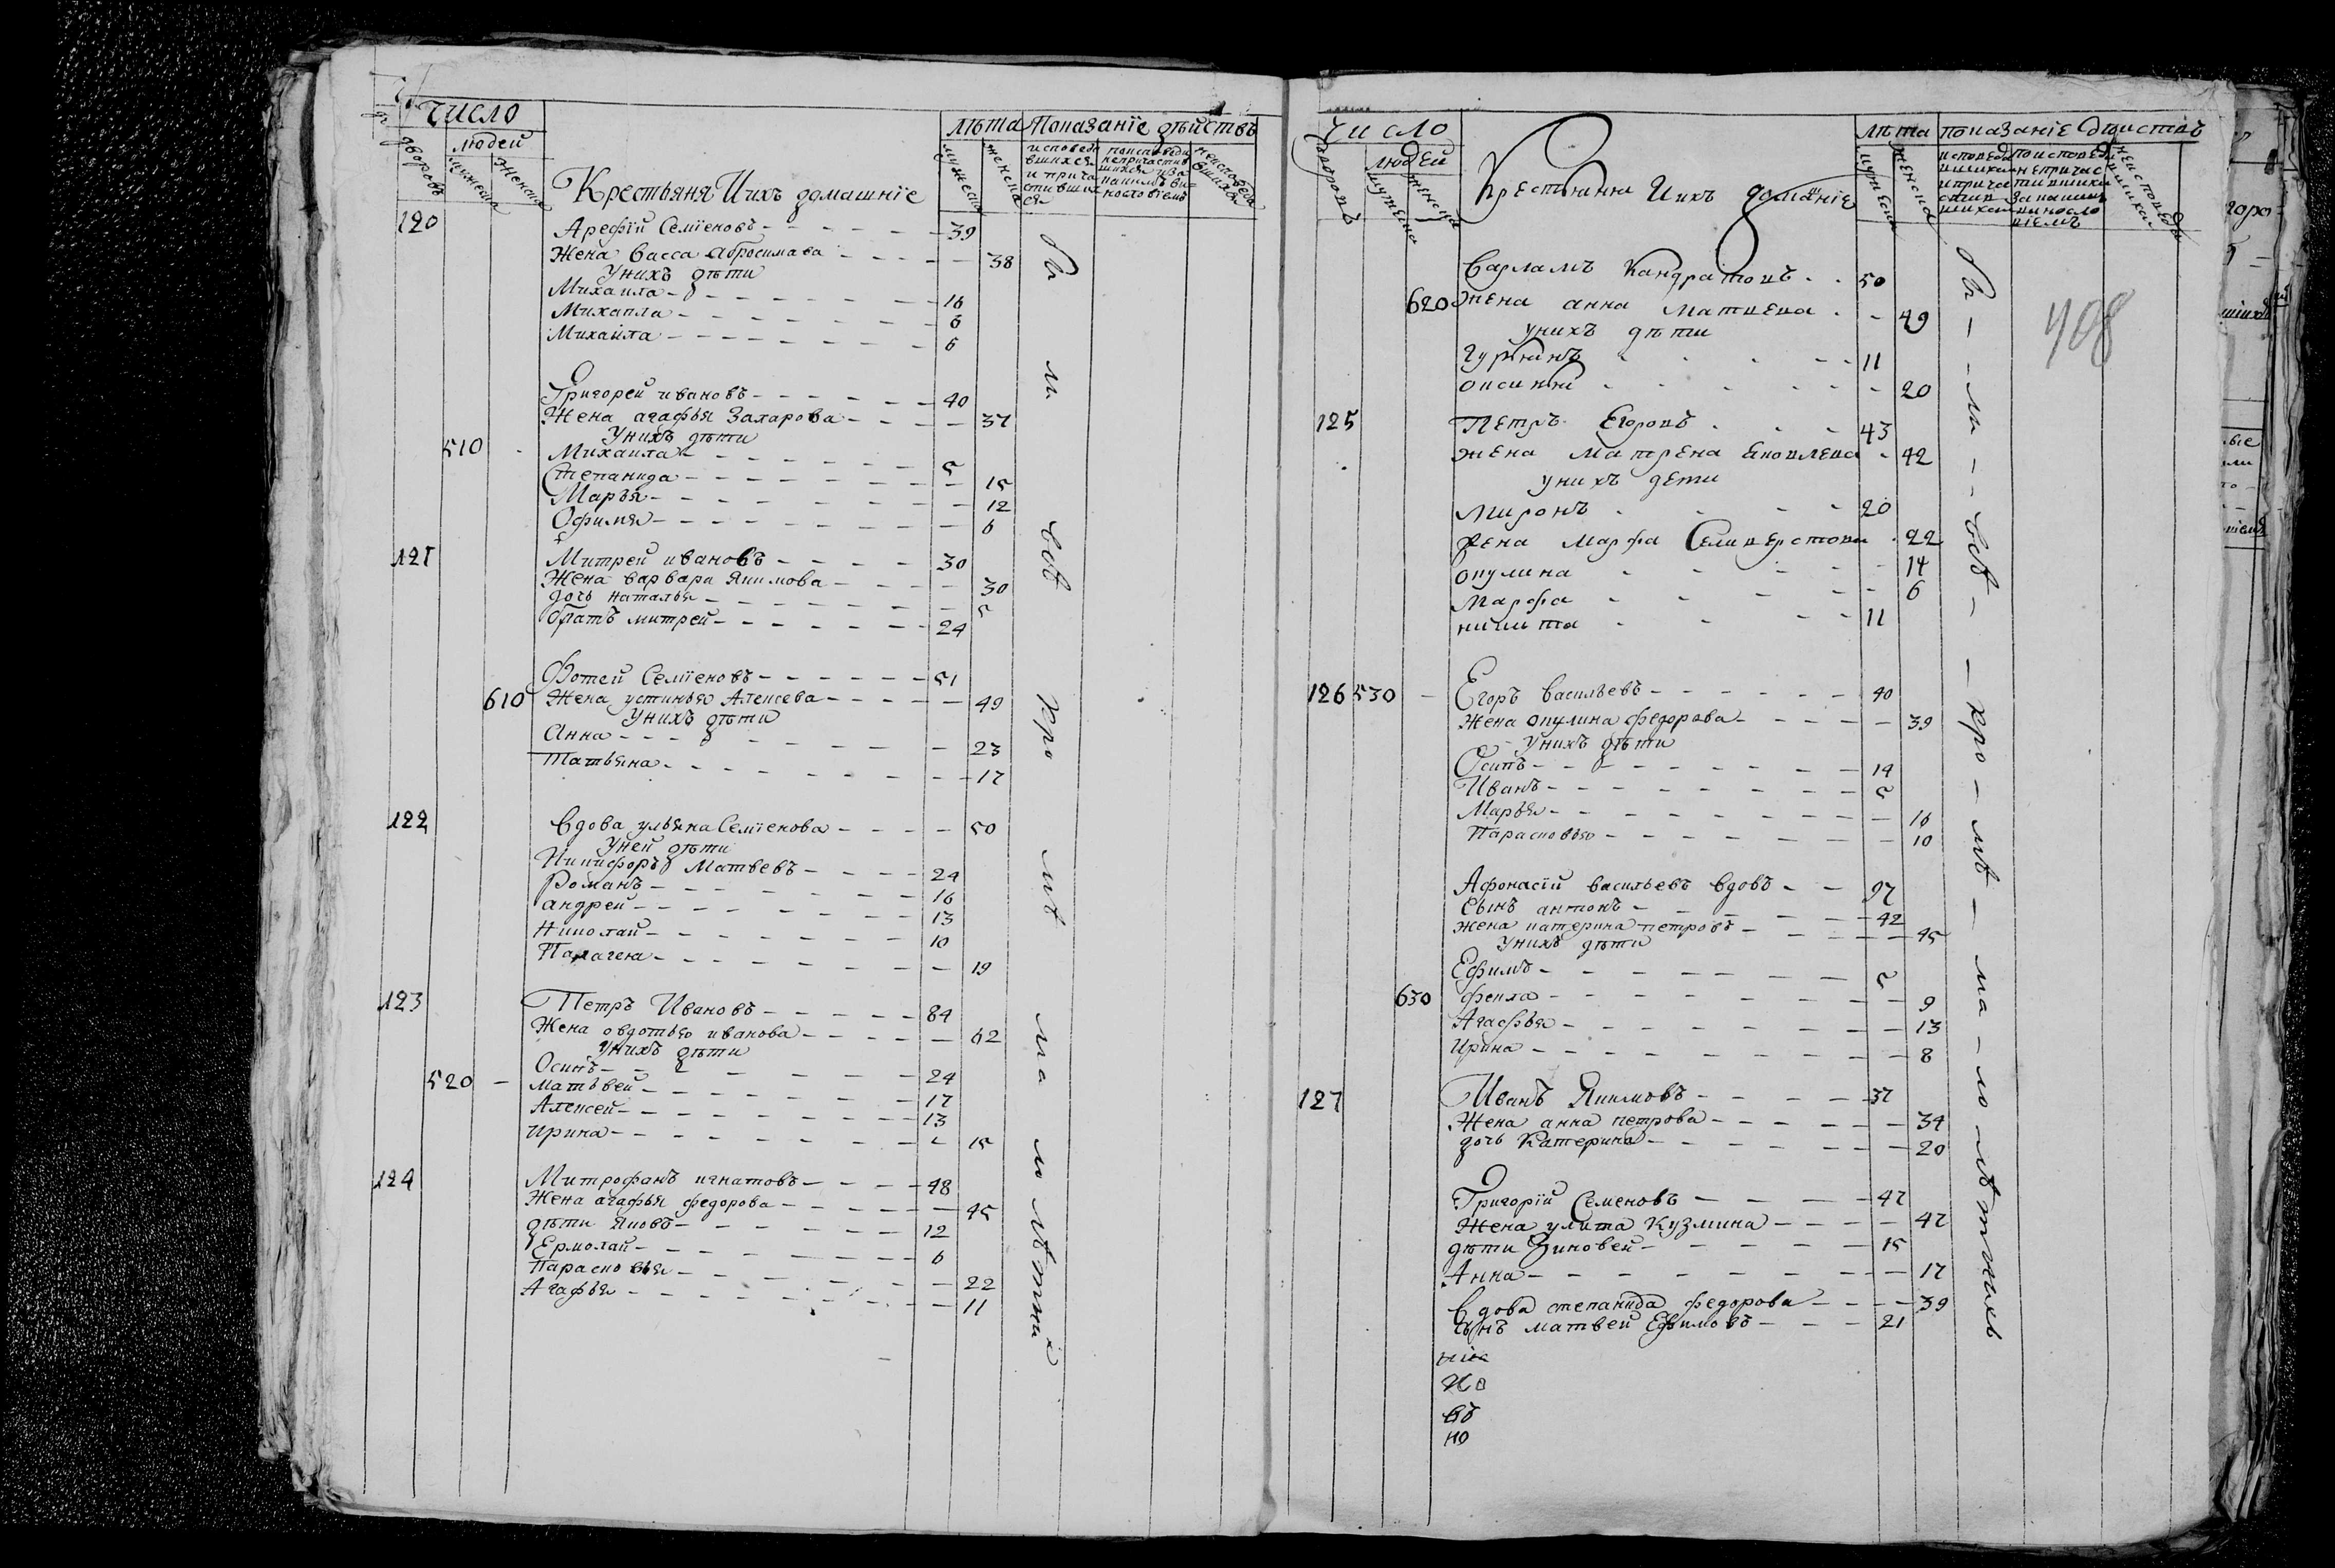 Число
людей
дворовъ
мужеска
женска
Крестьяня Ихъ домашнїе
лѣта
мужеска
женска
Показанїе дѣйствъ
120 Арефїй Семїеновъ 39
Жена Васса Абросимава 38
Унихъ дѣти
Михаила 16
Михаила 8
Михаила 6
Григорей ивановъ 40
Жена агафья Захарова 37
Унихъ дѣти
510 Михаила 5
Степанида 15
Марья 12
Офимья 6
121 Митрей ивановъ 30
Жена варвара Якимова 30
дочь наталья 5
братъ митрей 24
Фотей Семїеновъ 51
610 Жена устинья Алексева 49
Унихъ дѣти
Анна 23
Татьяна 17
122 Вдова ульяна Семїенова 50
Уней дѣти
Никифоръ Матвевъ 24
Романъ 16
андрей 13
Николай 10
Палагея 19
123 Петръ Ивановъ 84
Жена овдотья иванова 62
Унихъ дѣти
Осипъ 24
520 матьвей 17
Алексей 13
ирина 15
124 Митрофанъ игнатовъ 48
Жена агафья федорова 45
дѣти Яковъ 12
Ермолай 6
Парасковья 22
Агафья 11
бы ли всѣ кро мѣ ма ло лѣтних
Число
людей
дворовъ
мужеска
женска
Крестьянна Ихъ домашнїе
лѣта
мужеска
женска
показанїе дѣистивъ
408
Варламъ Кандратовъ 50
620 жена анна Матвева 49
унихъ дѣти
Гурьянъ 11
оксинья 20
125 Петръ Егоровъ 43
жена Матрена Яковлева 42
унихъ дети
Миронъ 20
жена Марфа Селиверстова 22
окулина 14
Марфа 6
никита 11
126 530 Егоръ Васильевъ 40
Жена окулина федорова 39
Унихъ дѣти
Осипъ 14
Иванъ 5
Марья 16
Парасковья 10
Афонасїй васильевъ вдовъ 97
Сынъ антонъ 42
жена катерина петровъ 45
Унихъ дѣти
Ефимъ 5
630 фекла 9
Агафья 13
ирина 8
127 Иванъ Якимовъ 37
Жена анна петрова 34
дочь Катерина 20
Григорїй Семеновъ 47
Жена улита Кузмина 47
дѣти Зиновей 15
Анна 17
Вдова степанида федорова 39
сынъ матвей Ефимовъ 21
но
бы ли всѣ кро мѣ ма ло лѣтныхъ